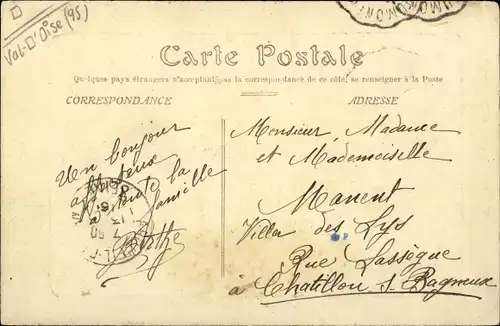 Val-D'Oise (95)
Carte Postale
Quelques pays étrangers n'acceptant pas la correspondance de ce côté, se renseigner à la Poste
CORRESPONDANCE
ADRESSE
Un bonjour
affectueux
à toute la
famille
Monsieur, Madame
et Mademoiselle
Manent
Villa des Lys
Rue Lassègue
à Chatillon s. Bagneux